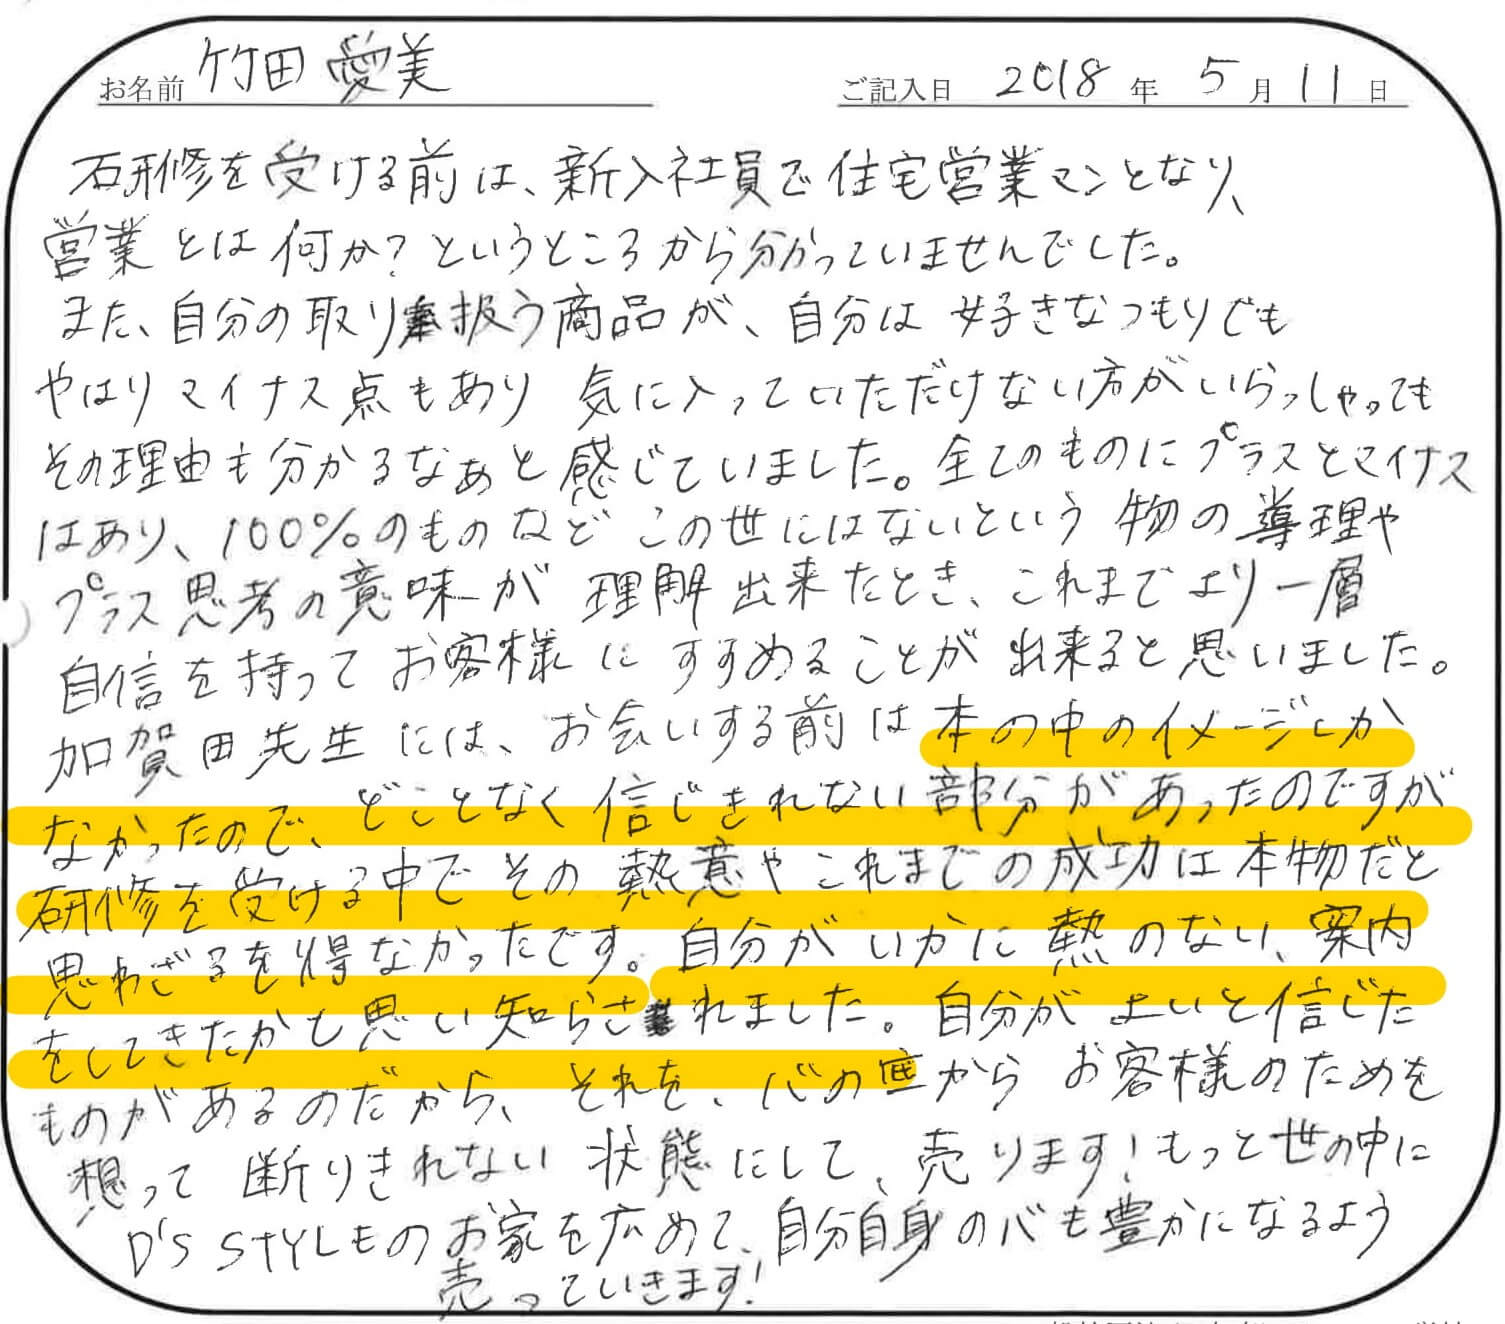 お名前 竹田 愛美 ご記入日 2018 年 5 月 11 日
研修を受ける前は、新入社員で住宅営業マンとなり、
営業とは何か?というところから分かっていませんでした。
また、自分の取り扱う商品が、自分は好きなつもりでも
やはりマイナス点もあり 気に入っていただけない方がいらっしゃっても
その理由も分かるなぁと感じていました。全てのものにプラスとマイナス
はあり、100%のものなどこの世にはないという物の導理や
プラス思考の意味が理解出来たとき、これまでより一層
自信を持ってお客様にすすめることが出来ると思いました。
加賀田先生には、お会いする前は本の中のイメージしか
なかったので、どことなく信じきれない部分があったのですが
研修を受ける中でその熱意やこれまでの成功は本物だと
思わざるを得なかったです。自分がいかに熱のない、案内
をしてきたかと思い知らされました。自分がよいと信じた
ものがあるのだから、それを、心の底からお客様のためを
想って断りきれない状態にして、売ります!もっと世の中に
D'S STYLEのお家を広めて、自分自身の心も豊かになるよう
売っていきます!